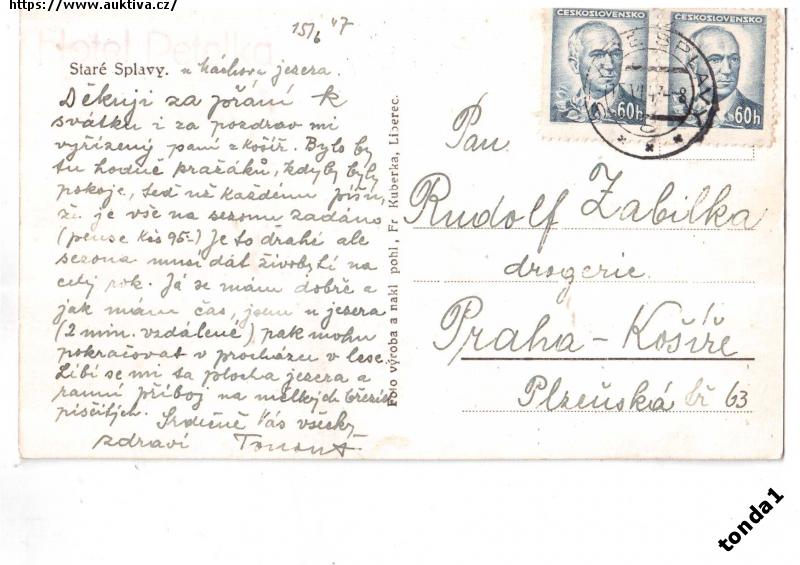 https://www.auktiva.cz/
15/6 47
Hotel Detalka
Staré Splavy. u Máchova jezera.
Děkuji za přání k
svátku i za pozdrav mi
vyřízený paní z Košíř. Bylo by
tu hodně pražáků, kdyby byly
pokoje, teď už každému píšu,
že je vše na sezonu zadáno
(pense Kčs 95-) Je to drahé ale
sezona musí dát živobytí na
celý rok. Já se mám dobře a
jak mám čas, jsem u jezera
(2 min. vzdálené) pak mohu
pokračovat v procházce v lese.
Líbí se mi ta plocha jezera a
ranní příboj na mělkých březích
písčitých. Srdečně Vás všecky
zdraví
Foto výroba a nakl pohl, Fr Kuberka, Liberec.
ČESKOSLOVENSKO
60h
ČESKOSLOVENSKO
60h
Pan
Rudolf Zabilka
drogerie
Praha - Košíře
Plzeňská tř 63
tonda1